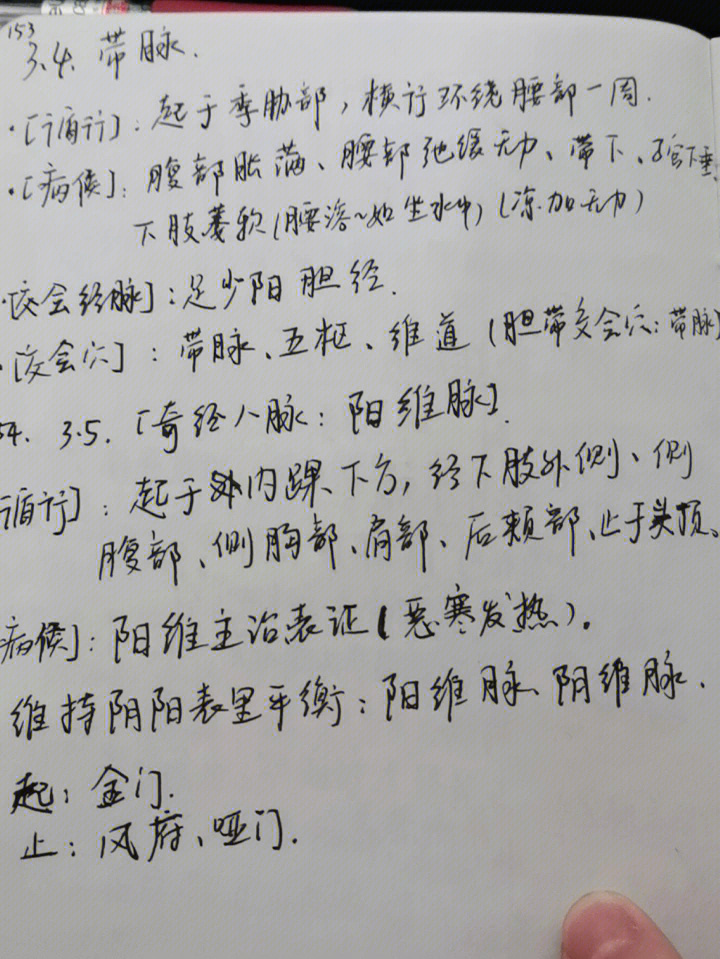 153
3.4. 带脉.
·[循行]: 起于季胁部, 横行环绕腰部一周.
·[病候]: 腹部胀满、腰部弛缓无力、带下、子宫下垂
下肢萎软(腰溶~如坐水中)(冻.加无力)
·[交会经脉]: 足少阳胆经.
·[交会穴]: 带脉、五枢、维道(胆带交会穴: 带脉
54. 3.5. [奇经八脉: 阳维脉].
循行]: 起于内踝下方, 经下肢外侧、侧
腹部、侧胸部、肩部、后颊部、止于头顶、
病候]: 阳维主治表证(恶寒发热).
维持阴阳表里平衡: 阳维脉、阴维脉.
起: 金门.
止: 风府、哑门.